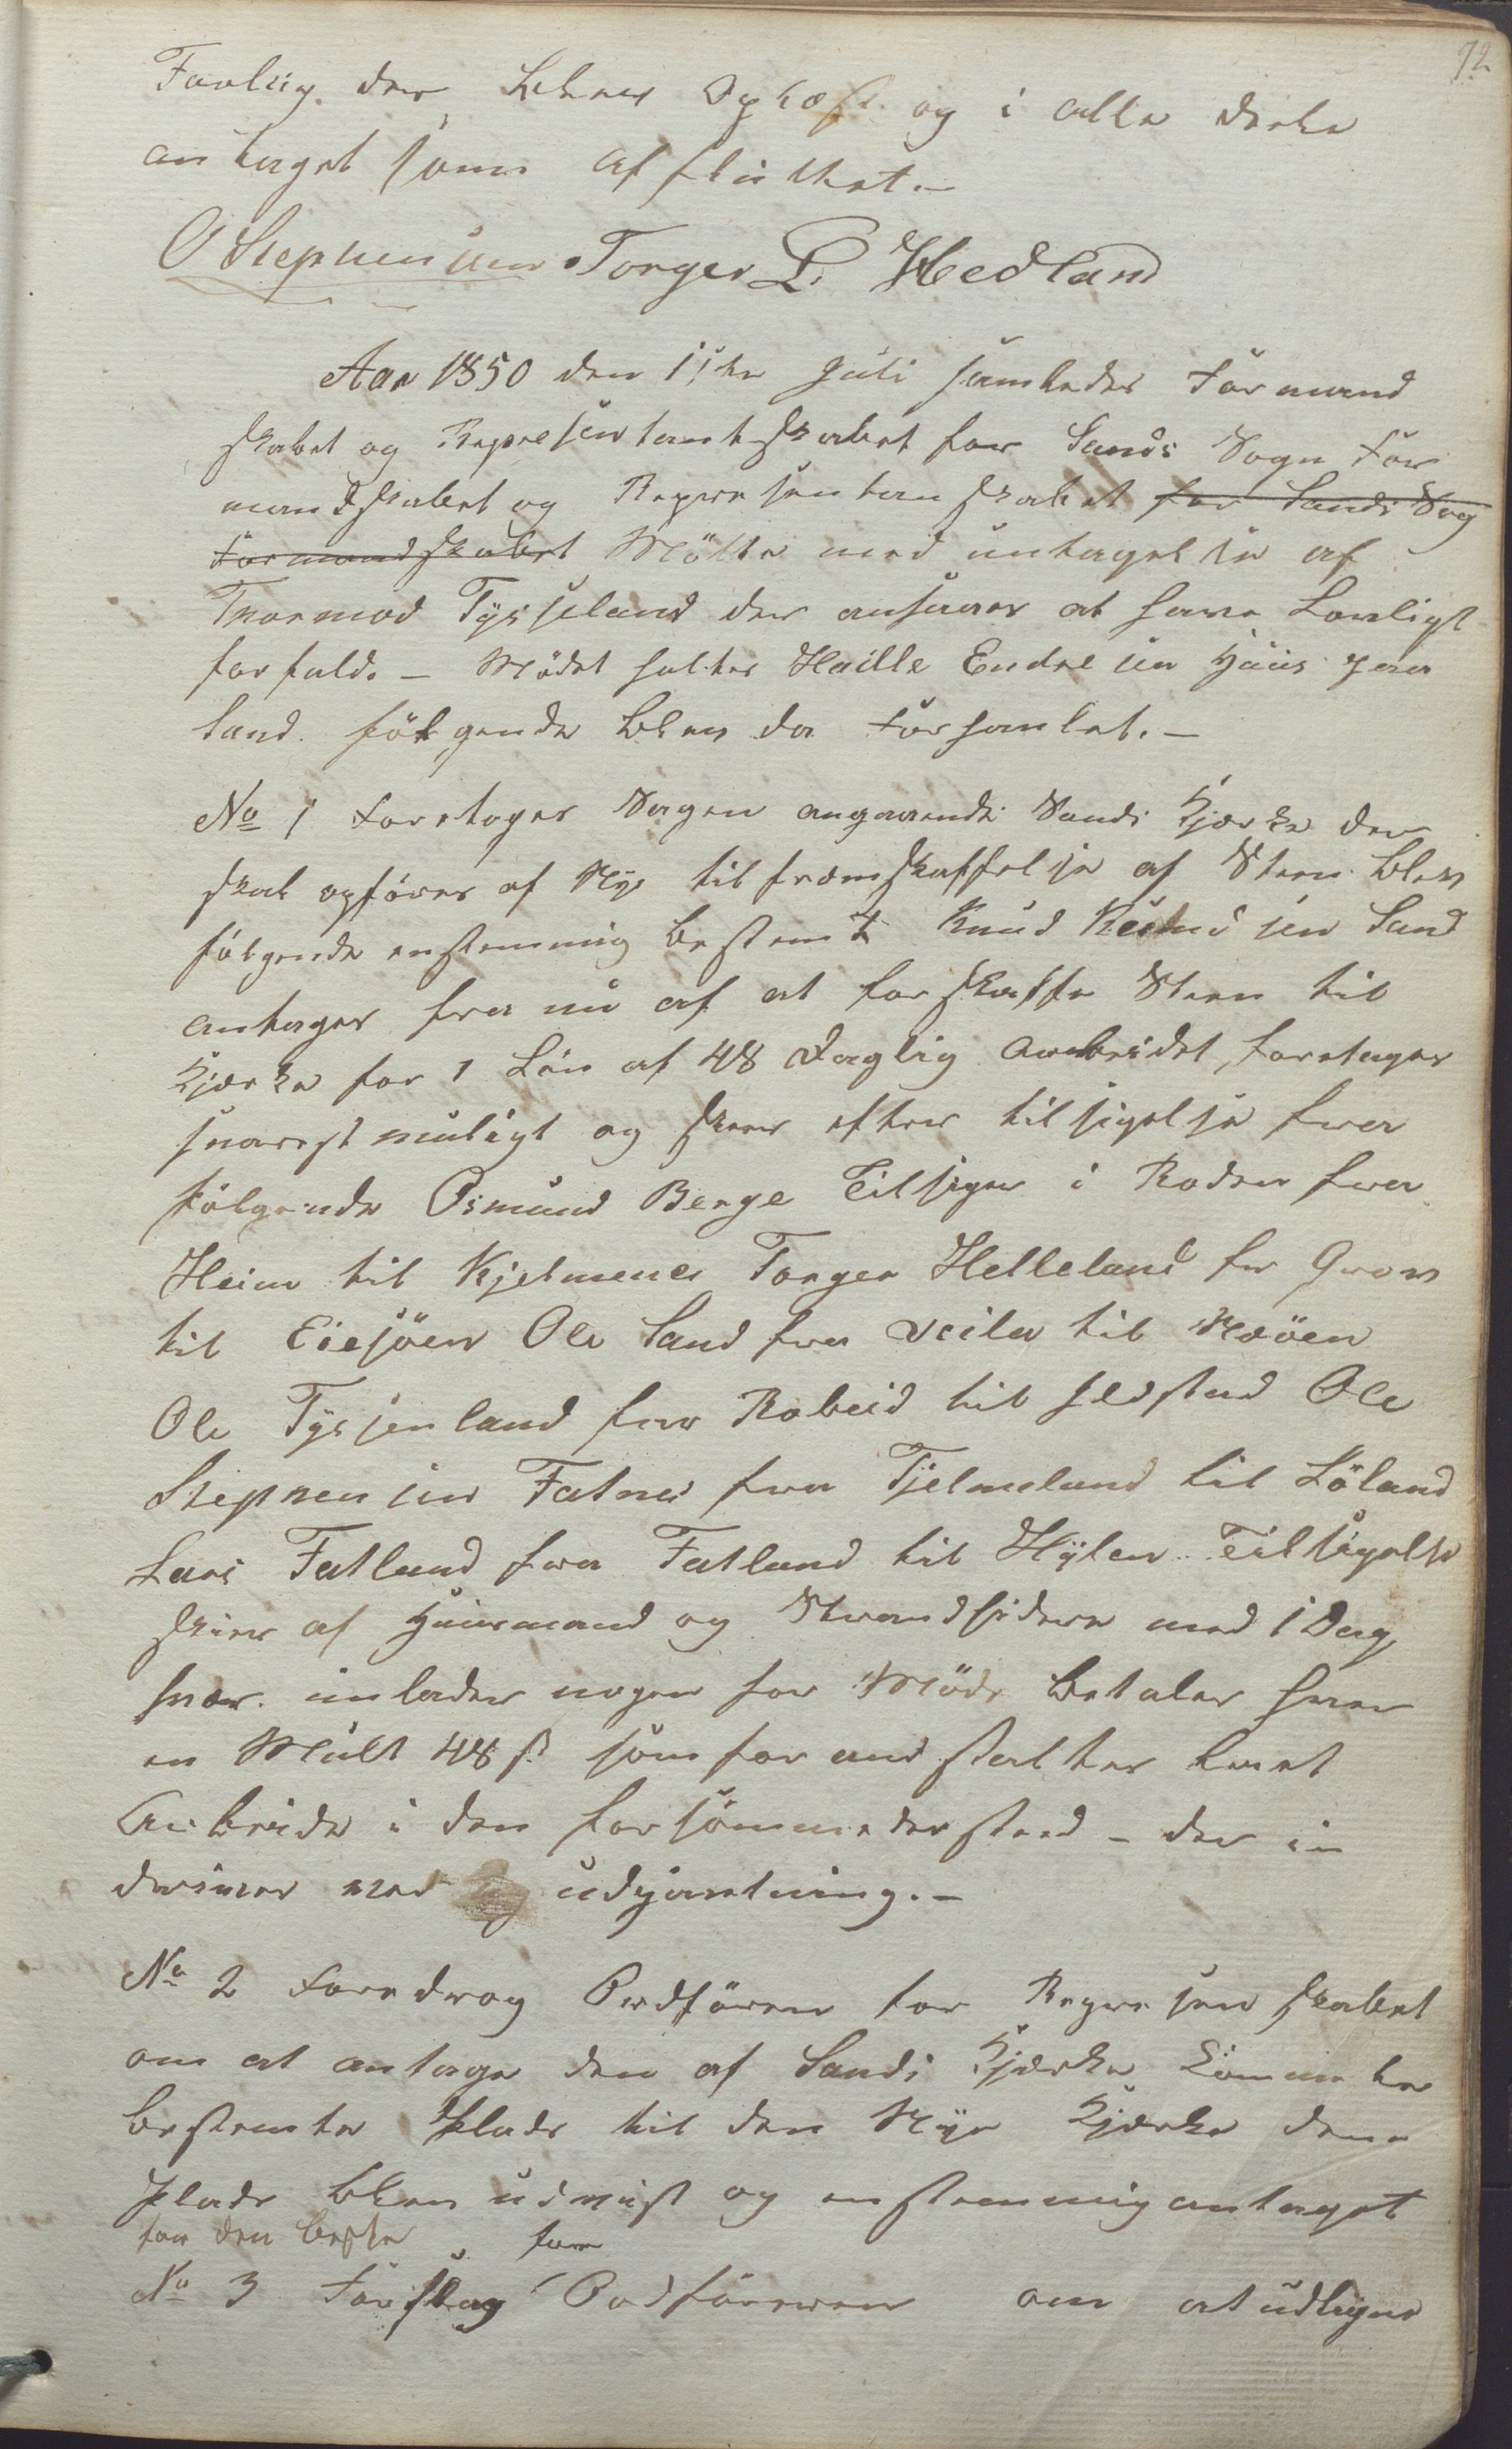 72
Forlig der blev Ophæst og i alle deele
antaget som affluttet. -
O Stephensen Torger L. Hedland
Aar 1850 den 11te Juli samledes Formand
skabet og Representantskabet for Sands Sogn For
mandskabet og Representanskabet for Sands Sog
Formandskabet Mötte med untagelse af
Thormod Tysseland der ansaaes at have Lovligt
forfald. - Mödet holtes Haille Endresen Huus paa
Sand. fölgende blev da forhanlet. -
No 1 Foretoges Sagen angaaende Sands Kjærke der
skal opföres af Nye til fremskaffelse af Steen blev
fölgende enstemmig bestemt Knud Knudsen Sand
antages fra nu af at forskaffe Steen til
Kjærke for 1 Lön af 48 Daglig Arbeidet, foretages
snarest muligt og skeer efter tilsigelse fra
fölgende Osmund Berge Tilsiger i Roden fra
Heim til Kjelmenes Torger Helleland fr Grov
til Eiesjöen Ole Sand fra Veila til Mæöen
Ole Tysjenland fra Robeid til Hedstad Ole
Stephensen Fatnes fra Tjelmeland til Löland
Lars Fatland fra Fatland til Hylen. Tilsigelse
skeer af Huusmand og Strandsidere med 1 Dag,
hver. unlader nogen for Möde betaler han
en Mult 48 s som foranstaltes leiet
Arbeide i den forsömmedes sted - der in
drives ved udpantning. -
No 2 Foredrog Ordfören for Represenskabet
om at antage den af Sands Kjærke Commite
bestemte Plads til den Nye Kjærke den
Plads blev udvist og enstemmig antaget
for den beste
for
No 3 Forslag Ordföreren om at udligne